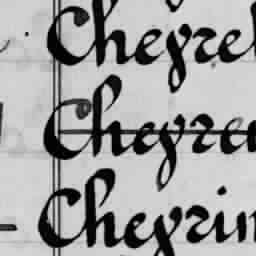 Cheyrel
Cheyren
Cheyrin